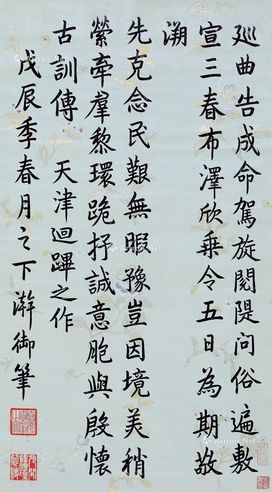 巡曲告成命駕旋閱隄問俗遍敷
宣三春布澤欣乘令五日為期敬
溯
先克念民艱無暇豫豈因境美稍
縈牽羣黎環跪抒誠意胞與殷懷
古訓傳 天津迴蹕之作
戊辰季春月之下澣御筆